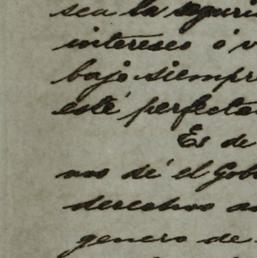 sea la seguri
intereses ó v
bajo siempr
esté perfecta
Es de
nos dé el Gob
derechos a
genero de